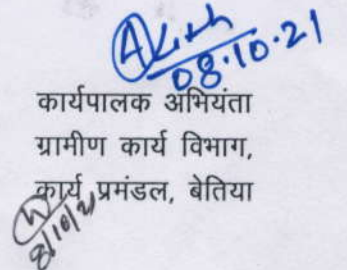 08.10.21
कार्यपालक अभियंता
ग्रामीण कार्य विभाग,
कार्य प्रमंडल, बेतिया
8/10/21